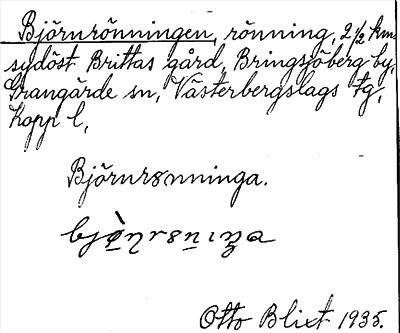 Björnrönningen, rönning, 2 1/2 km
sydöst Brittas gård, Bringsjöberg by,
Grangärde sn, Västerbergslags tg,
Kopp l,
Björnrȣnninga.
Otto Blixt 1935.